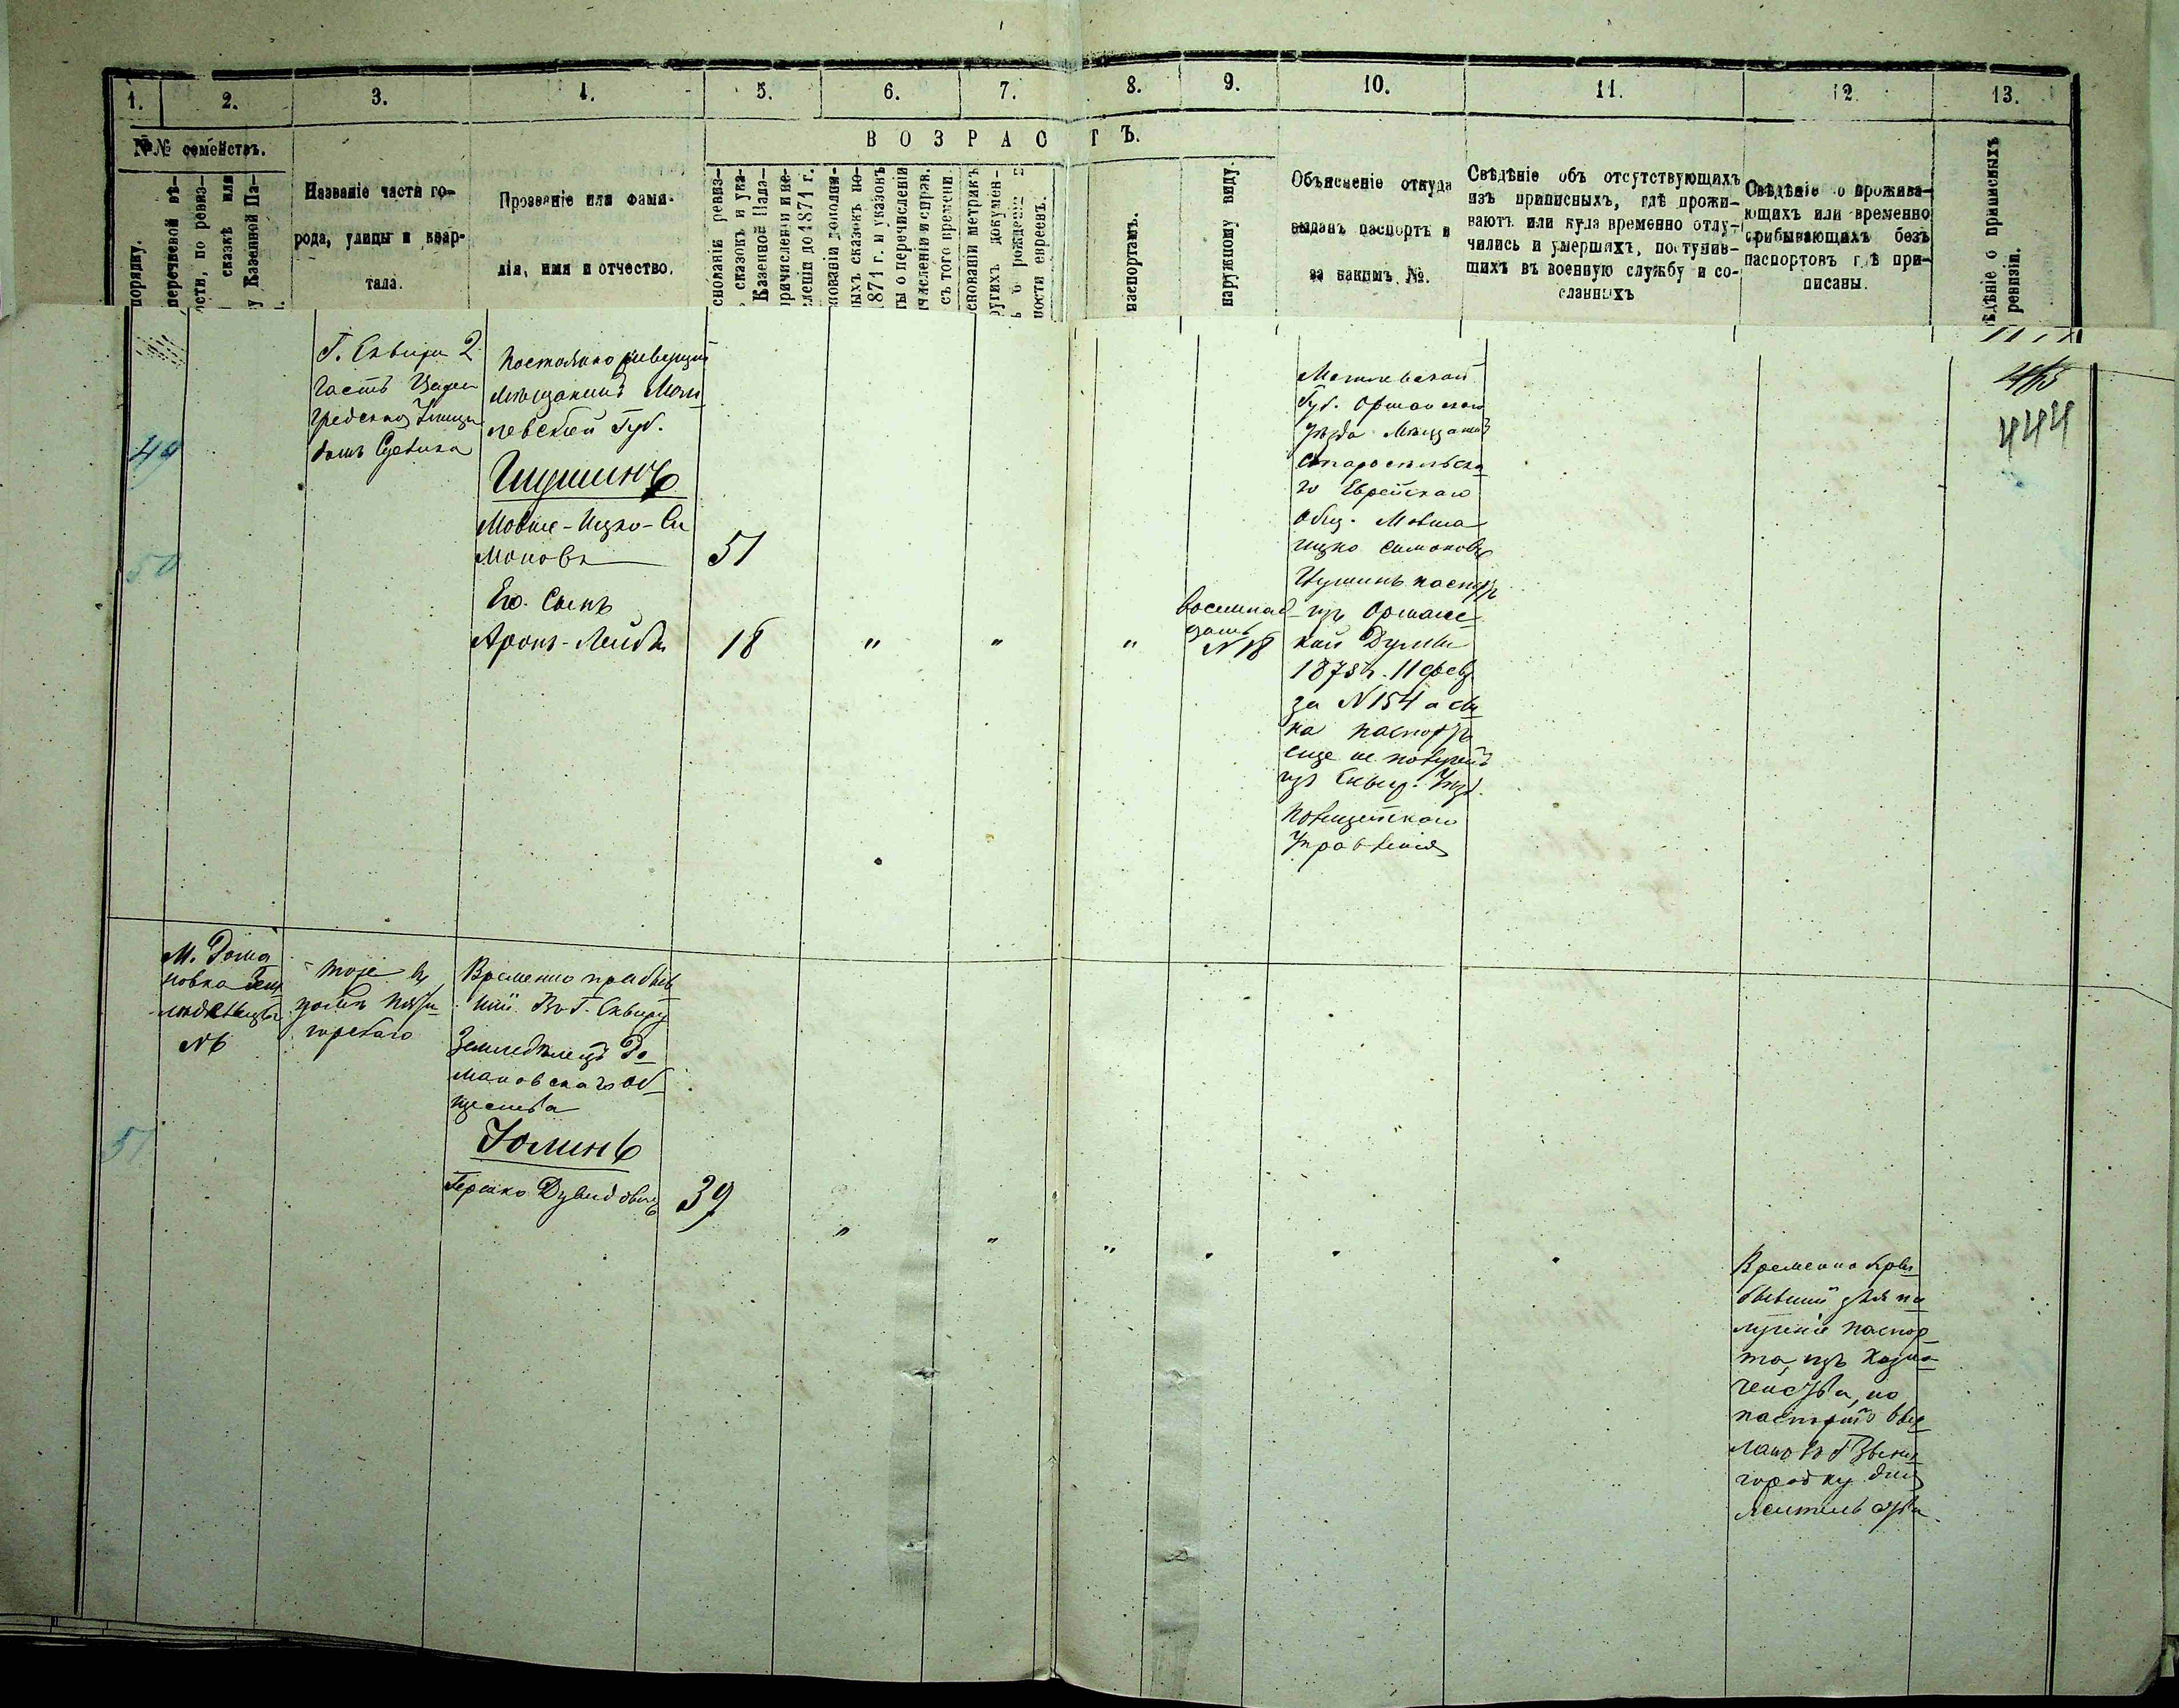 1. 2. 3. 4. 5. 6. 7. 8. 9. 10. 11. 12. 13.
№№ семействъ.
ВОЗРАСТЪ.
порядку.
перечневой вѣ-
ости, по ревиз-
сказкѣ или
у Казенной Па-
Названіе части го-
рода, улицы и квар-
тала.
Прозваніе или фами-
лія, имя и отчество.
снованіи ревиз-
сказокъ и ука-
Казенной Пала-
причисленіи и не-
сленіи до 1871 г.
нованіи дополни-
ныхъ сказокъ по-
871 г. и указовъ
ты о перечисленіи
ичисленіи и справ.
съ того времени.
снованіи метрикъ
ругихъ докумен-
ъ о рожденіи
ности евреевъ.
паспортамъ.
наружному виду.
Объясненіе откуда
выданъ паспортъ и
за какимъ №.
Свѣдѣніе объ отсутствующихъ
изъ приписныхъ, гдѣ прожи-
ваютъ или куда временно отлу-
чились и умершихъ, поступив-
шихъ въ военную службу и со-
сланныхъ
Свѣдѣніе о прожива-
ющихъ или временно
прибывающихъ безъ
паспортовъ гдѣ при-
писаны.
ѣдѣніе о приписныхъ
ревизіи.
49
50
Г. Сквира 2
часть
домъ
Постоянно живущій
мѣщанинъ Моги
левской Губ.
Мовше-Ицко-Си
моновъ
51
Его Сынъ
Аронъ-Лейба
18
"
"
"
восемнад
цать
N 18
Могилевской
Губ. Оршанскаго
Уѣзда Мѣщанинъ
Старосельска
го Еврейскаго
Общ. Мовша
Ицко Симоновъ
паспортъ
изъ Оршанс
кой Думы
11 фев
за N 154 а сы
на паспортъ
еще не получилъ
изъ Сквир. Уѣзд.
Полицейскаго
Управленія
444
М. Рома
новка Зем
N 6
51
тоже въ
домѣ Пяти
горскаго
Временно прибыв
шій въ Г. Сквиру
Земледѣлецъ Ро
мановскаго Об
щества
Юлинъ
Гершко Дувидовъ
39
"
"
"
Временно при
бывшій для по
лученіе паспор
та изъ Казна
чейства, но
паспортъ выс
ланъ въ Г Звени
городку для
жительства.